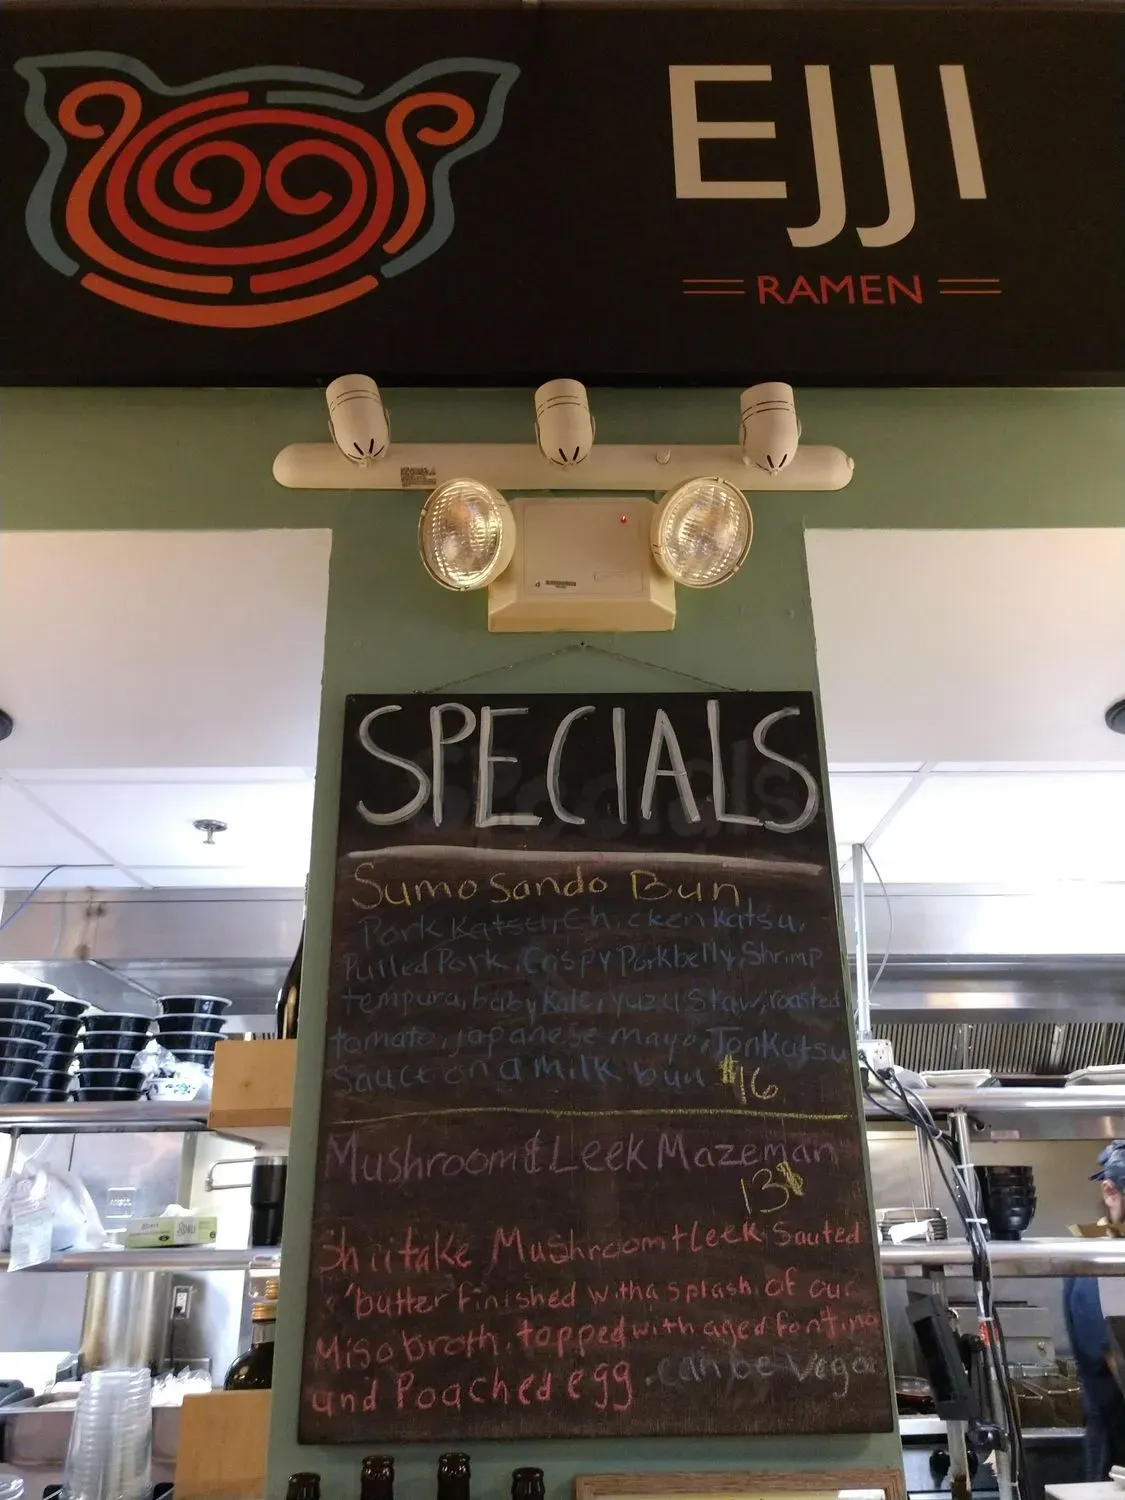 EJJI
RAMEN
SPECIALS
Sumo Sando Bun
Pork Katsu, Chicken Katsu,
Pulled Pork, Crispy Porkbelly, Shrimp
tempura, baby Kale, yuzu Slaw, roasted
tomato, japanese mayo, Tonkatsu
Sauce on a milk bun $16
Mushroom & Leek Mazeman
13$
Shiitake Mushroom + Leek Sauted
butter finished with a splash of our
Miso broth, topped with aged fontina
and Poached egg. can be Vegan